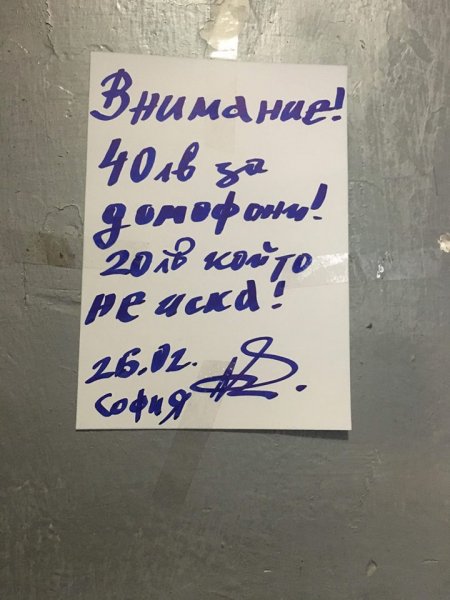 Внимание!
40лв за
домофони!
20лв който
не иска!
26.02.
София